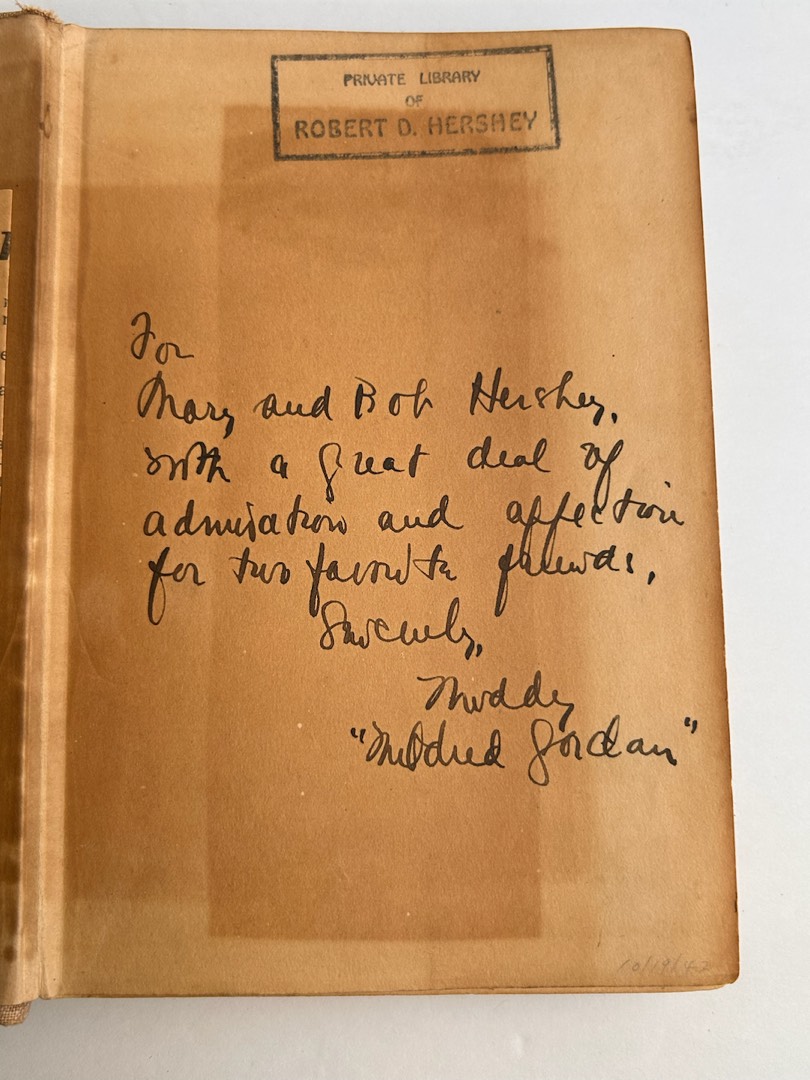 PRIVATE LIBRARY
OF
ROBERT D. HERSHEY
For
Mary and Bob Hershey,
with a great deal of
admiration and affection
for two favorite friends,
Sincerely,
Middy
"Mildred Jordan"
10/19/42